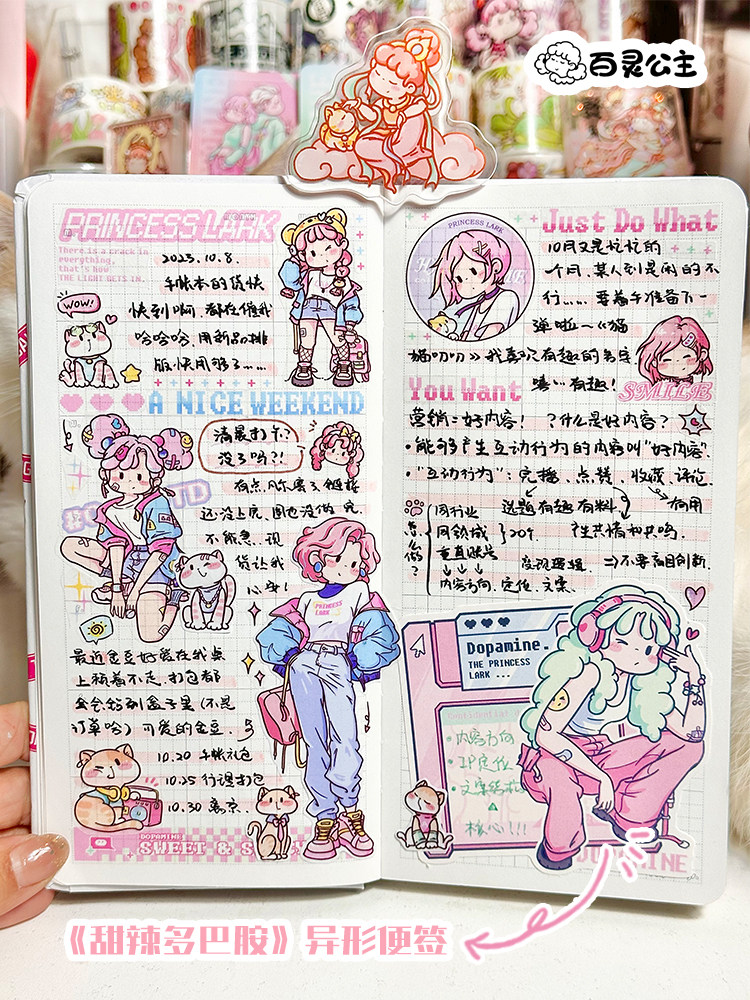 百灵公主
PRINCESS LARK
There is a crack in
everything,
that's how
THE LIGHT GETS IN.
2023.10.8.
手帐本的货快
快到啊,都在催我
哈哈哈,用新品排
版快用够了……
WOW!
A NICE WEEKEND
清晨打卡?
没了吗?!
有点凡尔赛了,链接
还没上完,图也没做完
不能急…现
货让我
心安!
最近金豆好爱在我桌
上躺着不走,打包都
会钻到盒子里(不是
订单哈)可爱的金豆.
10.20 手帐礼包
10.25 行李打包
10.30 离京.
DOPAMINE
SWEET & S
PRINCESS LARK
PRINCESS LARK
Just Do What
10月又是忙忙的
一个月,某人到是闲的不
行……要着手准备下一
弹啦~《猫
猫叨叨》我喜欢有趣的内容
嘻…有趣!
SMILE
You Want
营销=好内容! ?什么是好内容?
·能够产生互动行为的内容叫"好内容".
·"互动行为":完播、点赞、收藏、评论.
选题有趣有料 有用
怎么做?
同行业
同领域
垂直账号
20个
产生共情和共鸣.
发现逻辑 =>不要盲目创新.
内容方向.定位.文案.
Dopamine.
THE PRINCESS
LARK ...
·内容方向
·IP定位
·文案结构
核心!!!
《甜辣多巴胺》异形便签